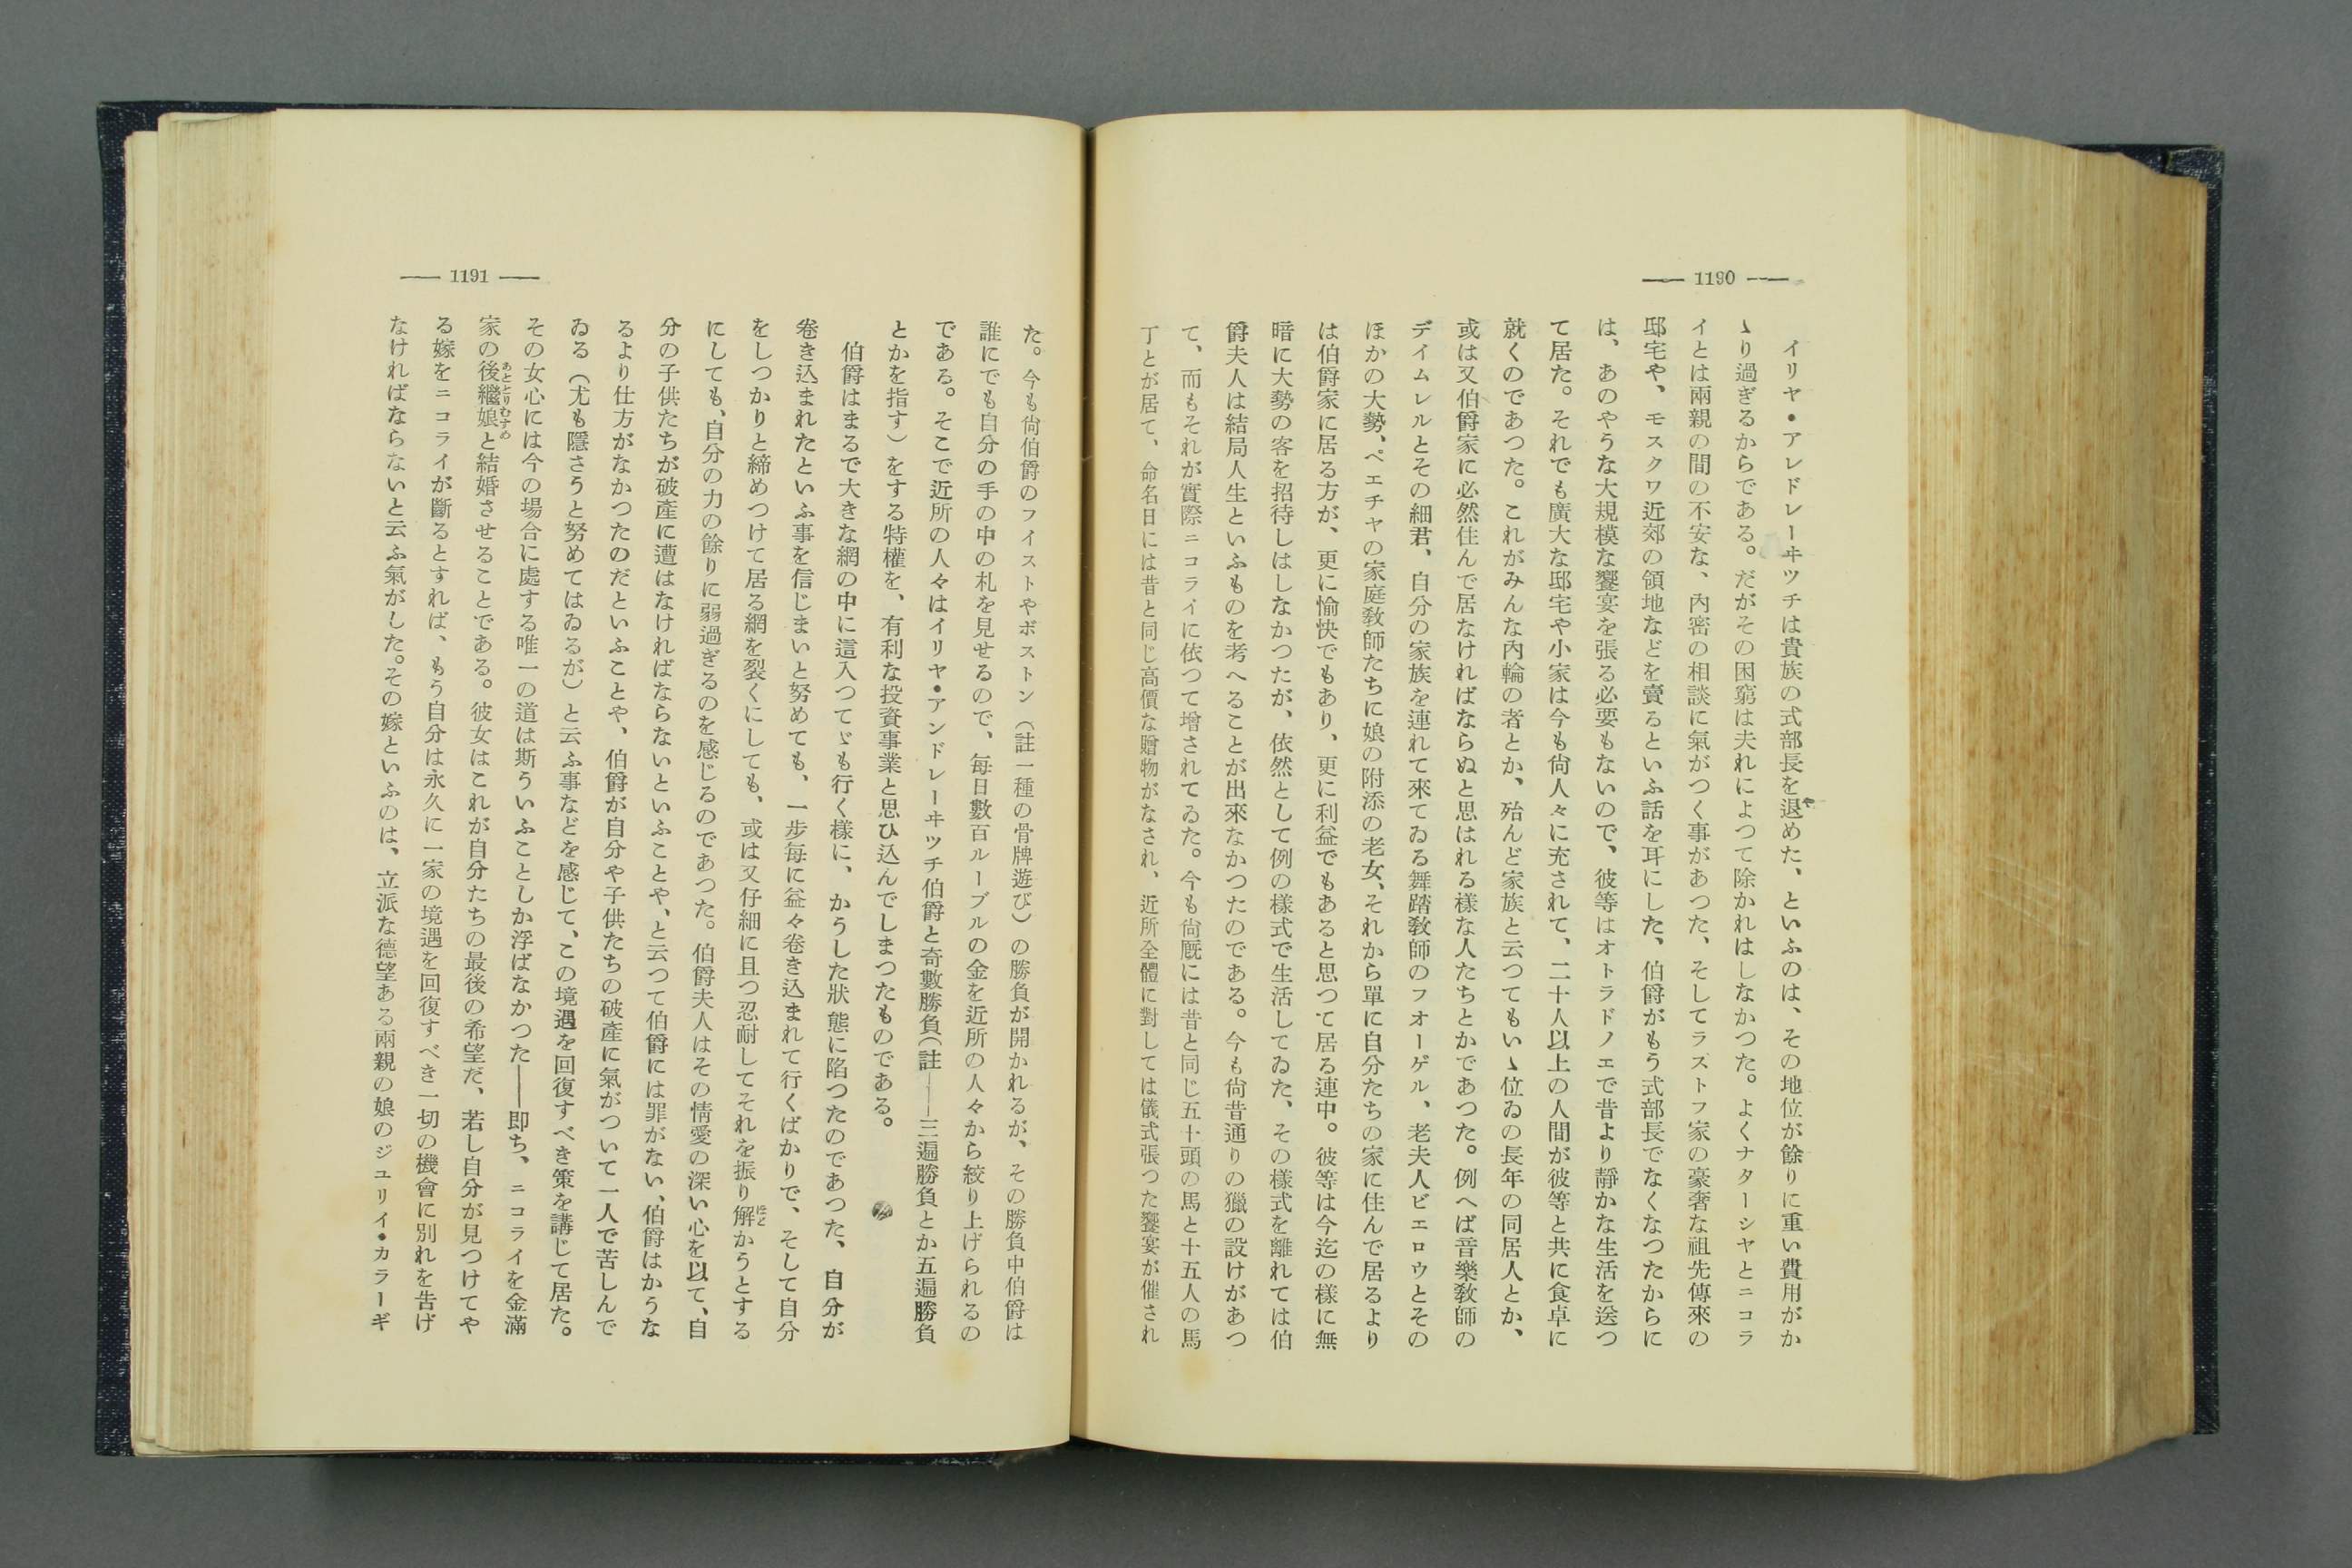 — 1190 —
イリヤ・アレドレーヰツチは貴族の式部長を退めた、といふのは、その地位が餘りに重い費用がか
ゝり過ぎるからである。だがその困窮は夫れによつて除かれはしなかつた。よくナターシヤとニコラ
イとは兩親の間の不安な、內密の相談に氣がつく事があつた、そしてラストフ家の豪奢な祖先傳來の
邸宅や、モスクワ近郊の領地などを賣るといふ話を耳にした、伯爵がもう式部長でなくなつたからに
は、あのやうな大規模な饗宴を張る必要もないので、彼等はオトラドノエで昔より靜かな生活を送つ
て居た。それでも廣大な邸宅や小家は今も尙人々に充されて、二十人以上の人間が彼等と共に食卓に
就くのであつた。これがみんな內輪の者とか、殆んど家族と云つてもいゝ位ゐの長年の同居人とか、
或は又伯爵家に必然住んで居なければならぬと思はれる樣な人たちとかであつた。例へば音樂敎師の
デイムレルとその細君、自分の家族を連れて來てゐる舞踏敎師のフオーゲル、老夫人ビエロウとその
ほかの大勢、ペエチヤの家庭敎師たちに娘の附添の老女、それから單に自分たちの家に住んで居るより
は伯爵家に居る方が、更に愉快でもあり、更に利益でもあると思つて居る連中。彼等は今迄の樣に無
暗に大勢の客を招待しはしなかつたが、依然として例の樣式で生活してゐた、その樣式を離れては伯
爵夫人は結局人生といふものを考へることが出來なかつたのである。今も尙昔通りの獵の設けがあつ
て、而もそれが實際ニコライに依つて增されてゐた。今も尙厩には昔と同じ五十頭の馬と十五人の馬
丁とが居て、命名日には昔と同じ高價な贈物がなされ、近所全體に對しては儀式張つた饗宴が催され
— 1191 —
た。今も尙伯爵のフイストやボストン（註一種の骨牌遊び）の勝負が開かれるが、その勝負中伯爵は
誰にでも自分の手の中の札を見せるので、每日數百ルーブルの金を近所の人々から絞り上げられるの
である。そこで近所の人々はイリヤ・アンドレーヰツチ伯爵と奇數勝負（註——三遍勝負とか五遍勝負
とかを指す）をする特權を、有利な投資事業と思ひ込んでしまつたものである。
伯爵はまるで大きな網の中に這入つてゞも行く樣に、かうした狀態に陷つたのであつた、自分が
卷き込まれたといふ事を信じまいと努めても、一步每に益々卷き込まれて行くばかりで、そして自分
をしつかりと締めつけて居る網を裂くにしても、或は又仔細に且つ忍耐してそれを振り解かうとする
にしても、自分の力の餘りに弱過ぎるのを感じるのであつた。伯爵夫人はその情愛の深い心を以て、自
分の子供たちが破產に遭はなければならないといふことや、と云つて伯爵には罪がない、伯爵はかうな
るより仕方がなかつたのだといふことや、伯爵が自分や子供たちの破產に氣がついて一人で苦しんで
ゐる（尤も隱さうと努めてはゐるが）と云ふ事などを感じて、この境遇を回復すべき策を講じて居た。
その女心には今の場合に處する唯一の道は斯ういふことしか浮ばなかつた——卽ち、ニコライを金滿
家の後繼娘と結婚させることである。彼女はこれが自分たちの最後の希望だ、若し自分が見つけてや
る嫁をニコライが斷るとすれば、もう自分は永久に一家の境遇を回復すべき一切の機會に別れを告げ
なければならないと云ふ氣がした。その嫁といふのは、立派な德望ある兩親の娘のジユリイ・カラーギ